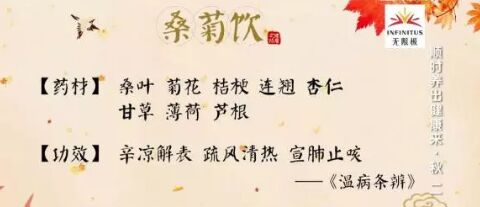 桑菊饮
INFINITUS
无限极
顺时养出健康来·秋 二
【药材】 桑叶 菊花 桔梗 连翘 杏仁
甘草 薄荷 芦根
【功效】 辛凉解表 疏风清热 宣肺止咳
——《温病条辨》